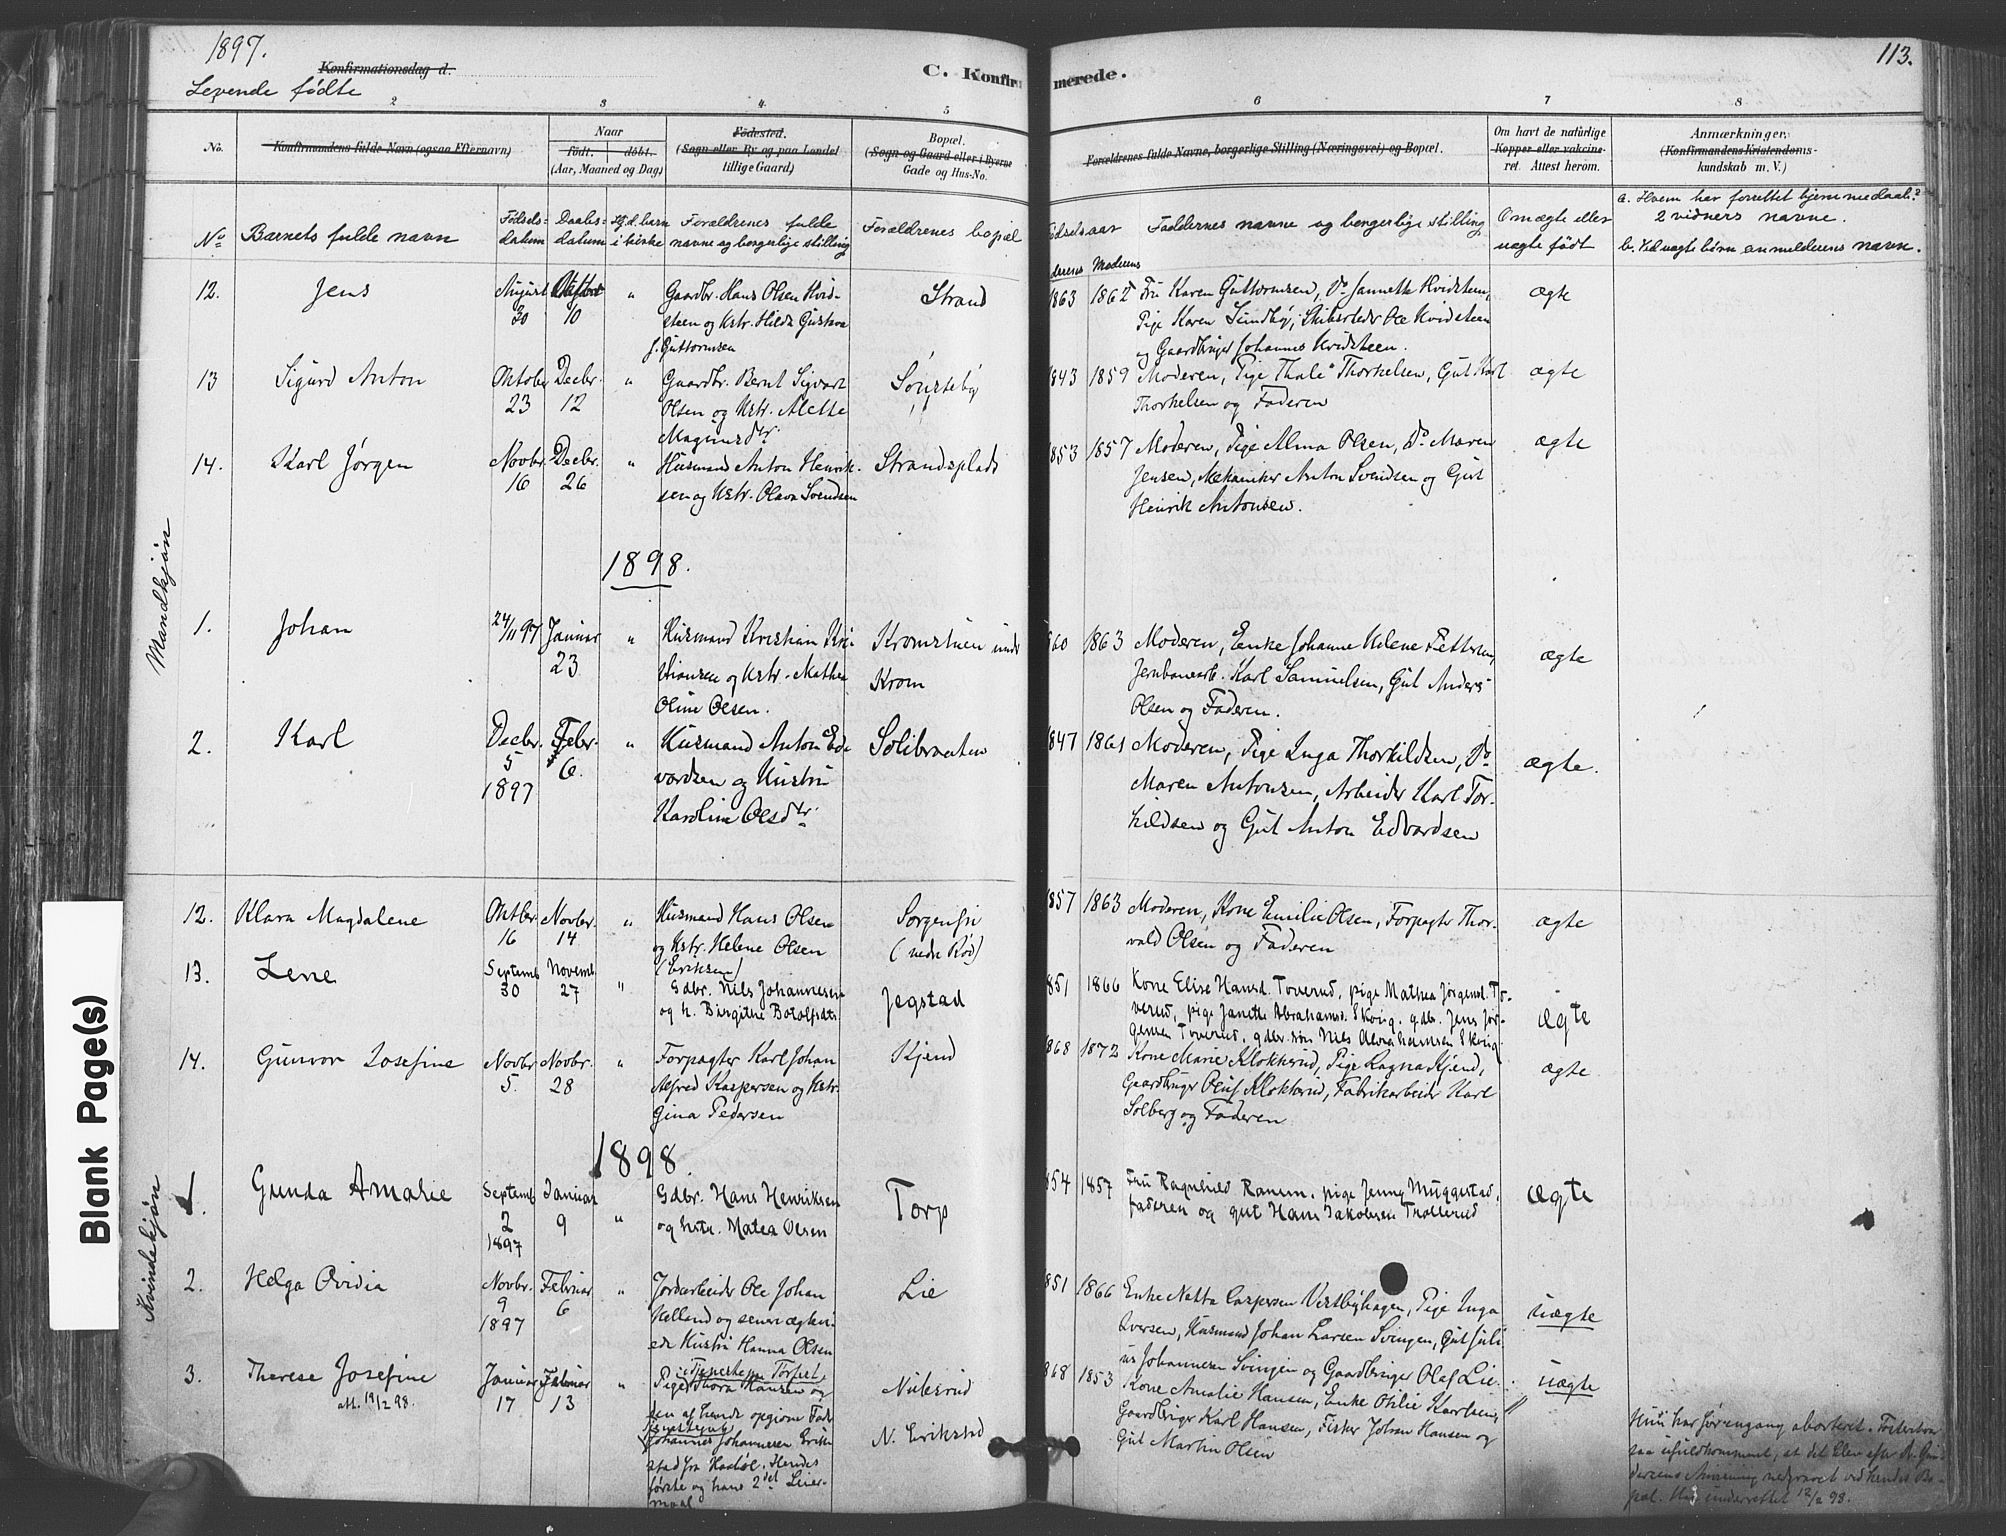 1897.
113.
Konfirmationsdag d.
C. Konfirmerede.
Levende fødte
2 3 4 5 6 7 8
No.
Konfirmandens fulde Navn (ogsaa Efternavn)
Naar
født. døbt.
(Aar, Maaned og Dag)
Fødested.
(Sogn eller By og paa Landet
tillige Gaard)
Bopæl.
(Sogn og Gaard eller i Byerne
Gade og Hus-No.
Forældrenes fulde Navne, borgerlige Stilling (Næringsvei) og Bopæl.
Om havt de naturlige
Kopper eller vakcine-
ret. Attest herom.
Anmærkninger.
(Konfirmandens Kristendoms-
kundskab m. V.)
No
Barnets fulde navn
Fødsels-
datum
Daabs-
datum
Hjd. barn
i kirke
Forældrenes fulde
navne og borgerlige stilling
Forældrenes bopæl
Fødselsaar
Moderens
Faddernes navne og borgerlige stilling
Om ægte eller
uægte født
a. Hvem har forrettet hjemmedaab?
2 vidners navne.
b. Ved uægte børn anmelderens navn.
Mandkjøn
12. Jens
August
30
10
"
Gaardbr. Hans Olsen Hvid-
steen og Kstr. Hilda Gustava
f. Guttormsen
Strand
1863 1862
Fru Karen Guttormsen, Do Jannette Hvidsteen,
Pige Karen Sundby, Skibsreder Ole Hvidsteen
og Gaardbruger Johannes Hvidsteen.
ægte
13 Sigurd Anton
Oktober
23
Decbr.
12
"
Gaardbr. Bernt Sigvart
Olsen og Kstr. Alette
Magnusdtr.
Sønsteby
1843 1859
Moderen, Pige Thale Thorkelsen, Gut Karl
Thorkelsen og Faderen
ægte
14. Karl Jørgen
Novbr.
16
Decbr.
26
"
Husmand Anton Henrik-
sen og Kstr. Olava Svendsen
Strandsplads
1853 1857
Moderen, Pige Alma Olsen, Do Maren
Jensen, Mekaniker Anton Svendsen og Gut
Henrik Antonsen.
ægte
1898.
1. Johan
24/11 97
Januar
23
"
Husmand Kristian Kri-
stiansen og Kstr. Mathea
Oline Olsen.
Kromstuen under
Krom
60 1863
Moderen, Enke Johanne Helene Pettersen,
Jernbanearb. Karl Samuelsen, Gut Anders
Olsen og Faderen.
ægte
2. Karl
Decbr.
5
1897
Febr.
6.
"
Husmand Anton Ed-
vardsen og Hustru
Karoline Olsdtr.
Solibraaten
1847 1861
Moderen, Pige Inga Thorkildsen, Do
Maren Antonsen, Arbeider Karl Tor-
kildsen og Gut Anton Edvardsen
ægte.
12. Klara Magdalene
Oktbr.
16
Novbr.
14
"
Husmand Hans Olsen
og Kstr. Helene Olsen
(Eriksen)
Sorgenfri
(nedre Rød)
1857 1863
Moderen, Kone Emilie Olsen, Forpagter Thor-
vald Olsen og Faderen
ægte
13. Lene
Septemb
30
Novemb
27
"
Gdbr. Nils Johannesen
og h. Birgithe Botolfsdtr.
Jegstad
851 1866
Kone Elise Hansd. Toverud, pige Mathea Jørgensd. To-
verud, pige Janette Abrahamsd. Skoug. gdbr. Jens Jør-
gensen Toverud, gdbr. søn Nils Abrahamsen Skoug
ægte
14. Gunvor Josefine
Novbr
5.
Novbr.
28
"
Forpagter Karl Johan
Alfred Kaspersen og Kstr
Gina Pedersen
Kjend
868 1872
Kone Marie Klokkerud, Pige Ragna Kjend,
Gaardbruger Oluf Klokkerud, Fabrikarbeider Karl
Solberg og Faderen
ægte.
1898
Kvindekjøn
1. Gunda Amalie
Septemb
2
1897
Januar
9
"
Gdbr. Hans Henriksen
og hstr. Matea Olsen
Torp
854 1857
Fru Ragnhild Ramm, pige Jenny Muggestad,
faderen og gut Hans Jakobsen Thollerud
ægte
2. Helga Ovidia
Novbr.
9
1897
Februar
6
"
Jordarbeider Ole Johan
Helland og senere ægtevi-
ede Hustru Hanna Olsen
Lie
851 1866
Enke Netta Caspersen Vestbyhagen, Pige Inga
Iversen, Husmand Johan Larsen Svingen, Gut Juli-
us Johannesen Svingen og Gaardbruger Olaf Lie.
uægte
3. Therese Josefine
att. 19/2 98.
Januar
17
Februar
13
"
Pige Thora Hansen og
den af hende opgivne Fader
Johannes Johannesen Erik-
stad fra Hobøl. Hendes
første og hans 2det Leier-
maal
N. Erikstad
868 1853
Kone Amalie Hansen, Enke Othilie Karlsen,
Gaardbruger Karl Hansen, Fisker Johan Hansen og
Gut Martin Olsen
uægte
"
Hun har før engang aborteret. Fosteret var
saa ufuldkomment, at det blev efter Dr. Gun-
dersens Anvisning nedgravet ved hendes Bo-
pæl. underrettet 12/2 98.
Blank Page(s)